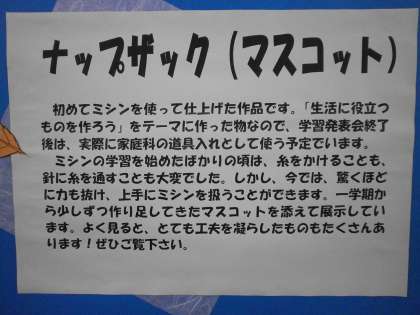 ナップザック(マスコット)
初めてミシンを使って仕上げた作品です。「生活に役立つ
ものを作ろう」をテーマに作った物なので、学習発表会終了
後は、実際に家庭科の道具入れとして使う予定でいます。
ミシンの学習を始めたばかりの頃は、糸をかけることも、
針に糸を通すことも大変でした。しかし、今では、驚くほど
に力も抜け、上手にミシンを扱うことができます。一学期か
ら少しずつ作り足してきたマスコットを添えて展示していま
す。よく見ると、とても工夫を凝らしたものもたくさんあ
ります！ぜひご覧下さい。